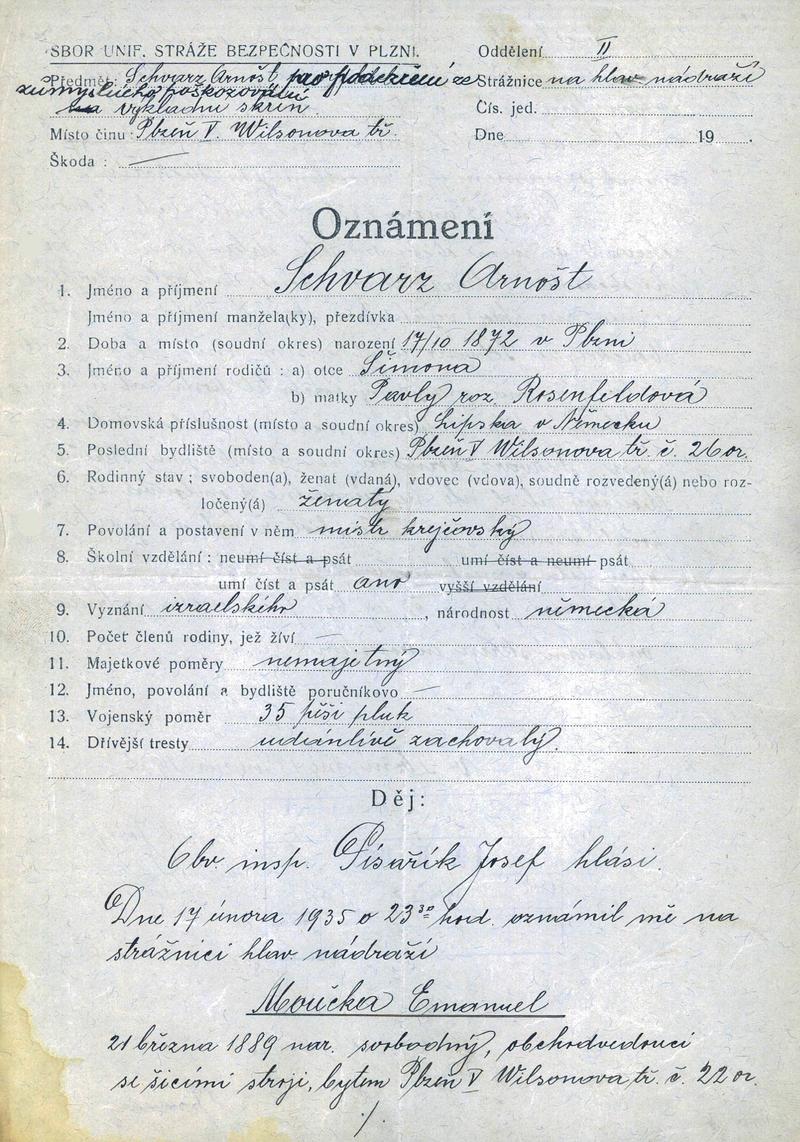 SBOR UNIF. STRÁŽE BEZPEČNOSTI V PLZNI.
Oddělení II
Předmět: Schvarz Arnošt pro podezření ze
zúmyslného poškozování
výkladní skříň
Strážnice na hlav nádraží
Čís. jed.
Místo činu: Plzeň V. Wilsonova tř.
Dne 19 .
Škoda : —
Oznámení
1. Jméno a příjmení Schvarz Arnošt
Jméno a příjmení manžela(ky), přezdívka
2. Doba a místo (soudní okres) narození 17/10 1872 v Plzni
3. Jméno a příjmení rodičů : a) otce Šimona
b) matky Pavly roz. Rosenfeldová
4. Domovská příslušnost (místo a soudní okres) Lipska v Německu
5. Poslední bydliště (místo a soudní okres) Plzeň V Wilsonova tř. č. 26 or.
6. Rodinný stav ; svoboden(a), ženat (vdaná), vdovec (vdova), soudně rozvedený(á) nebo roz-
ločený(á) ženatý
7. Povolání a postavení v něm mistr krejčovský
8. Školní vzdělání : neumí číst a psát umí číst a neumí psát
umí číst a psát ano vyšší vzdělání
9. Vyznání izraelského , národnost německá
10. Počet členů rodiny, jež živí —
11. Majetkové poměry nemajetný
12. Jméno, povolání a bydliště poručníkovo —
13. Vojenský poměr 35 pěší pluk
14. Dřívější tresty udánlivě zachovalý.
Děj:
Obv. insp. Písařík Josef hlásí.
Dne 17 února 1935 o 23³⁰ hod. oznámil mě na
strážnici hlav nádraží
Moučka Emanuel
21 března 1889 nar. svobodný, obchodvedoucí
se šicími stroji, bytem Plzeň V Wilsonova tř. č. 22 or.
./.